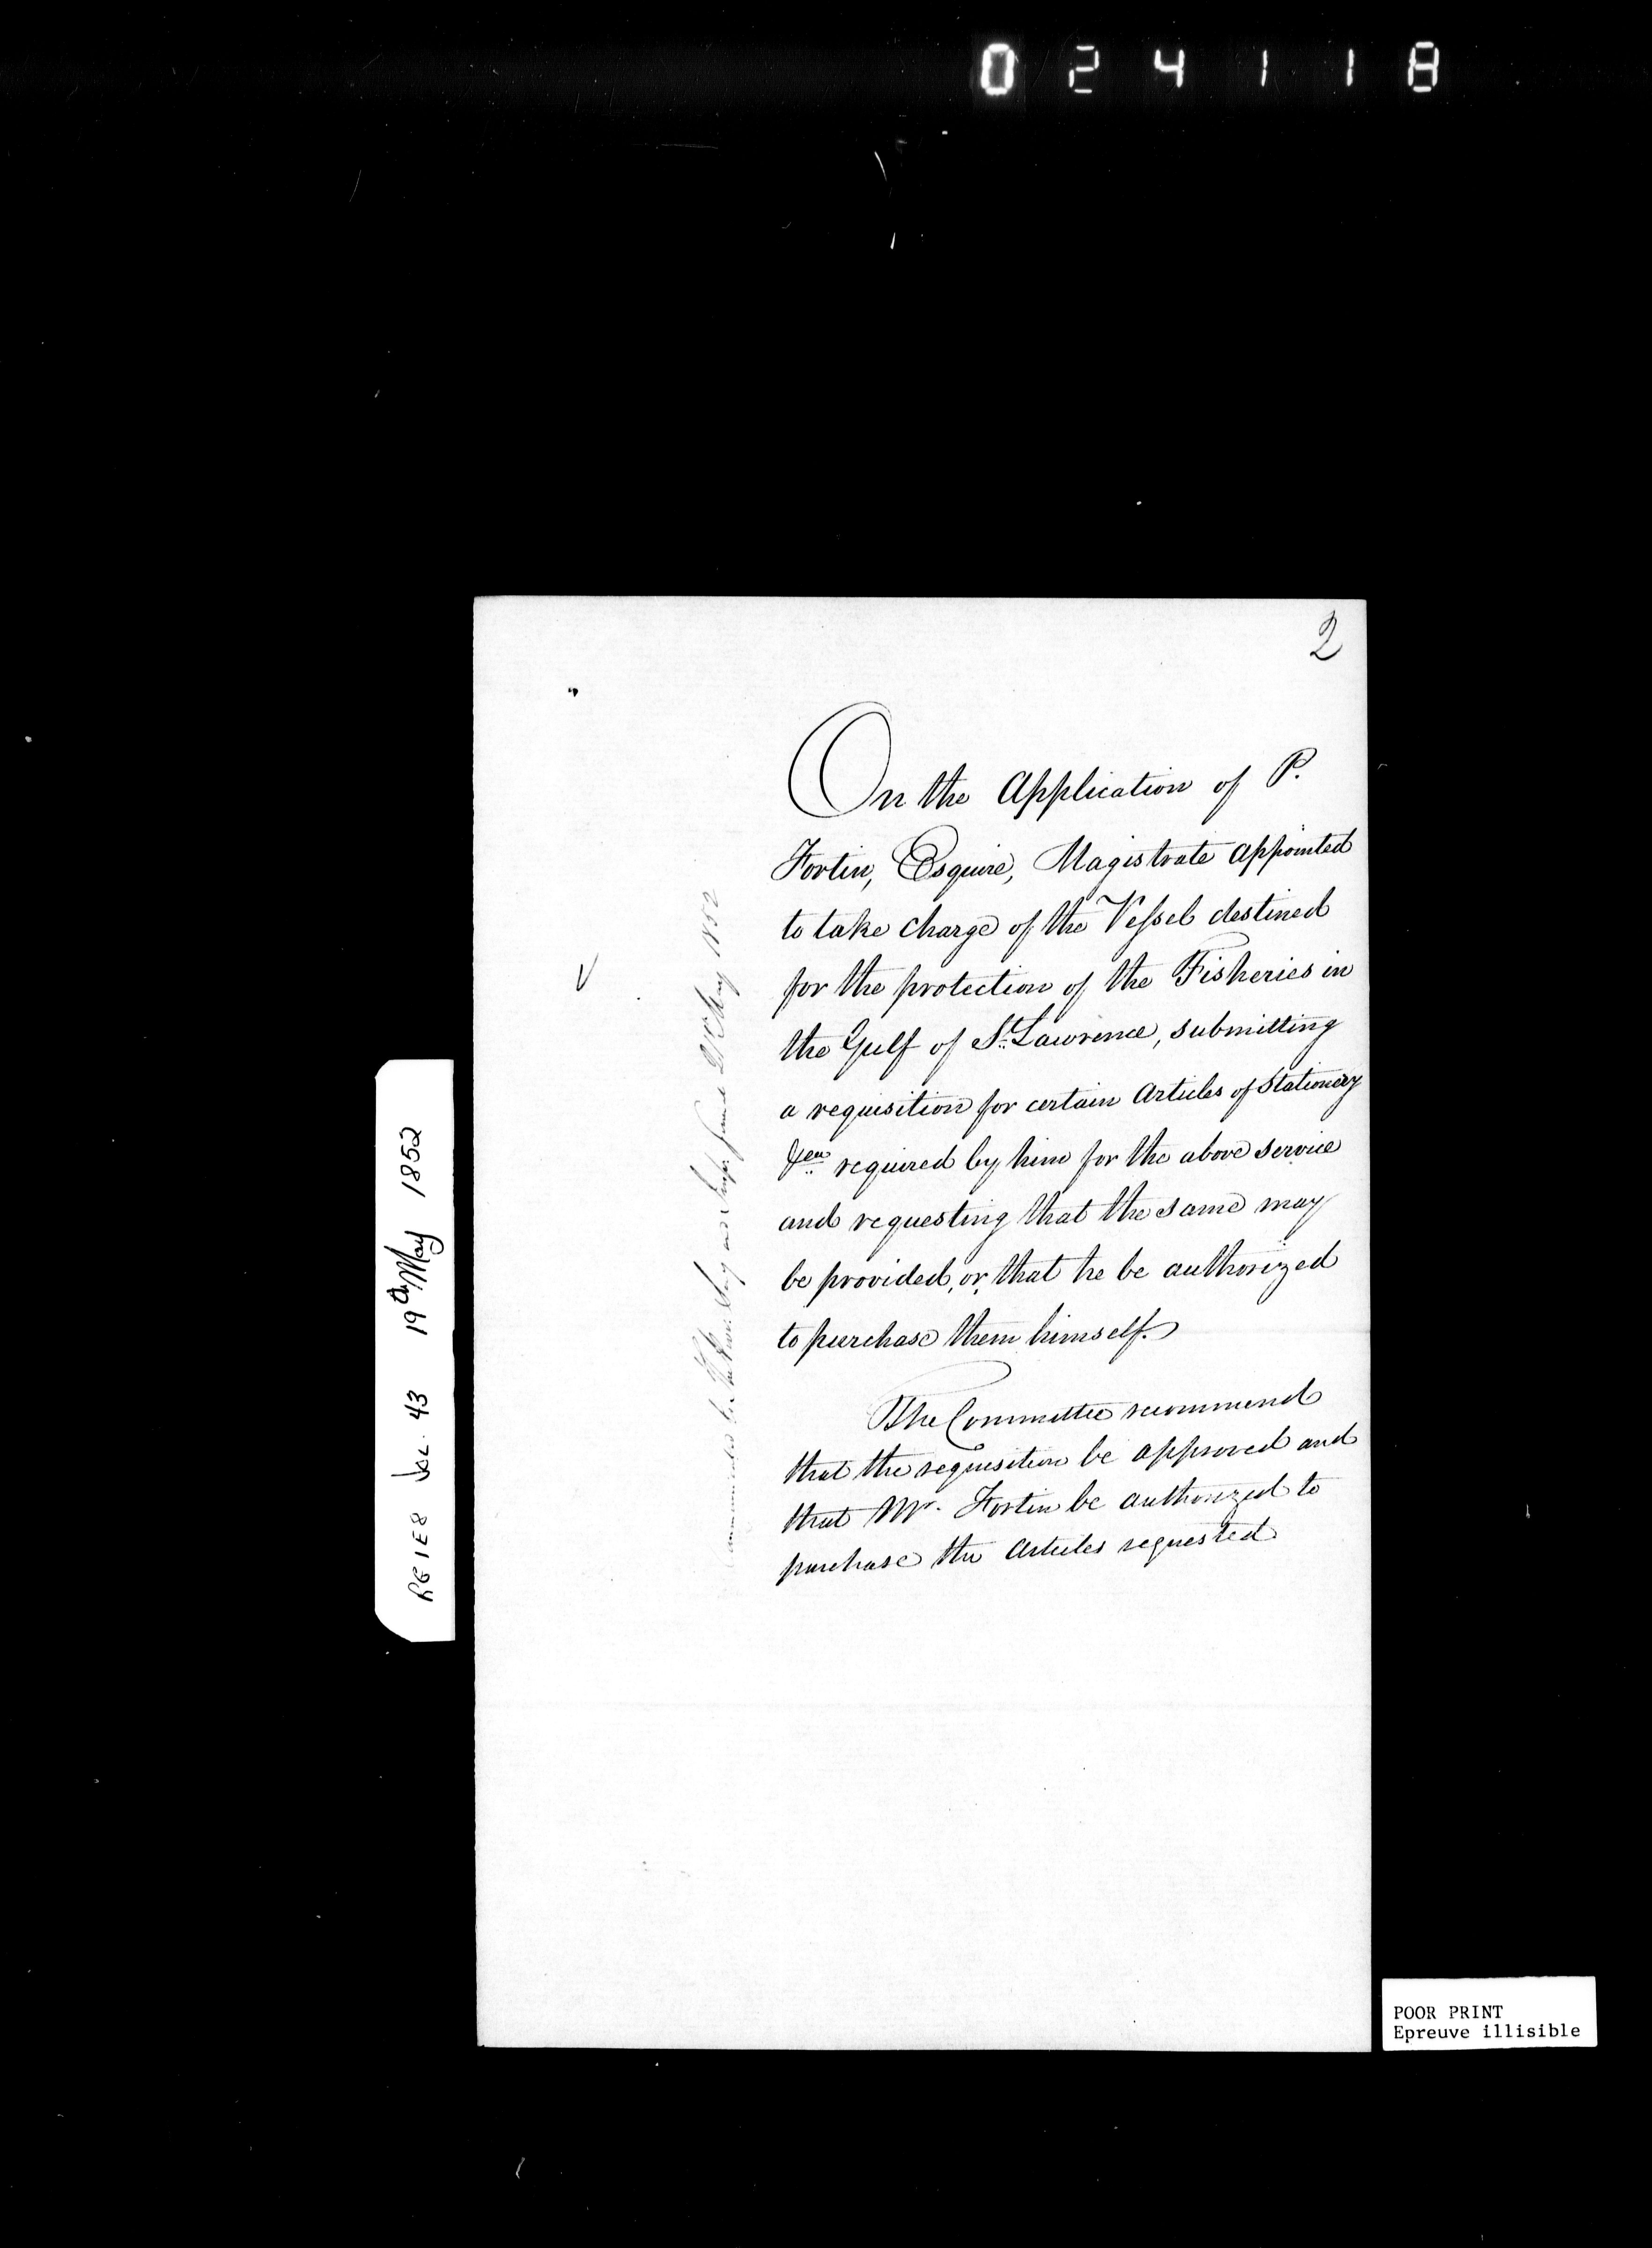 024118
2
On the Application of P.
Fortin, Esquire, Magistrate appointed
to take charge of the Vessel destined
for the protection of the Fisheries in
the Gulf of St. Lawrence, submitting
a requisition for certain Articles of Stationery
&ca required by him for the above service
and requesting that the same may
be provided, or, that he be authorized
to purchase them himself.
The Committee recommend
that the requisition be approved and
that Mr. Fortin be authorized to
purchase the Articles requested
May 1852
RG1E8 Vol. 43 19th May 1852
POOR PRINT
Epreuve illisible